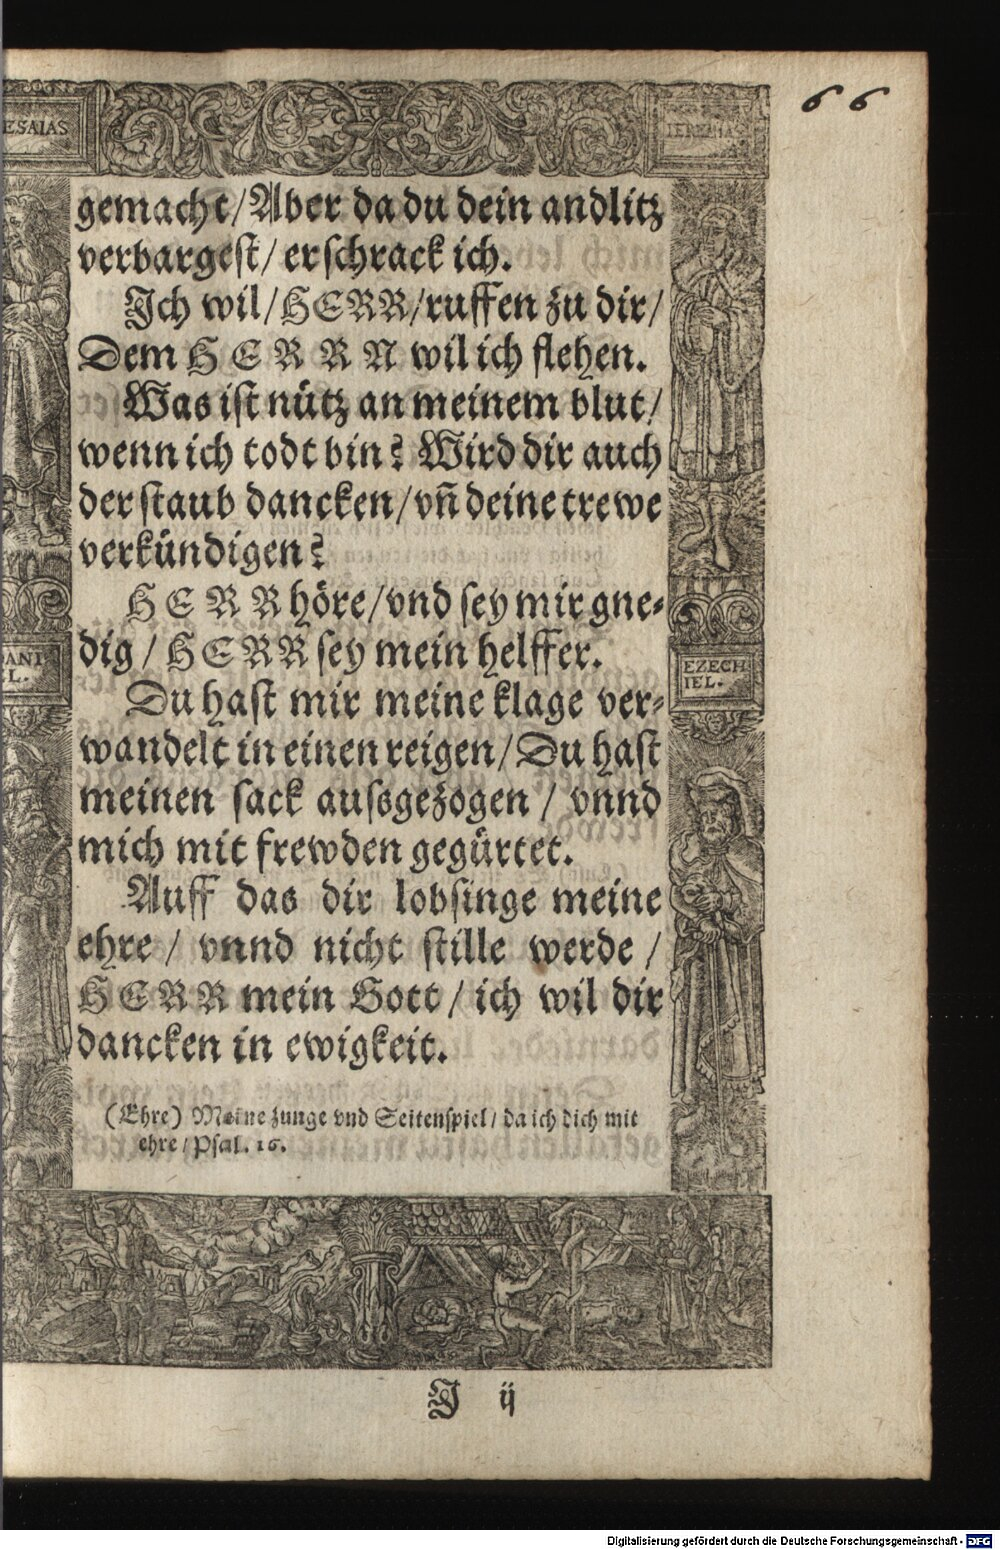 66
ESAIAS
IEREMIAS
gemacht/Aber da du dein andlitz
verbargest/ erschrack ich.
Ich wil/HERR/ruffen zu dir/
Dem HERRN wil ich flehen.
Was ist nütz an meinem blut/
wenn ich todt bin? Wird dir auch
der staub dancken/vñ deine trewe
verkündigen?
HERR höre/vnd sey mir gne-
dig/HERR sey mein helffer.
Du hast mir meine klage ver-
wandelt in einen reigen/Du hast
meinen sack ausgezogen/vnnd
mich mit frewden gegürtet.
Auff das dir lobsinge meine
ehre/ vnnd nicht stille werde/
HERR mein Gott/ich wil dir
dancken in ewigkeit.
(Ehre) Meine zunge vnd Seitenspiel/da ich dich mit
ehre/Psal. 16.
DANI
EL.
EZECH
IEL.
J ij
Digitalisierung gefördert durch die Deutsche Forschungsgemeinschaft - DFG